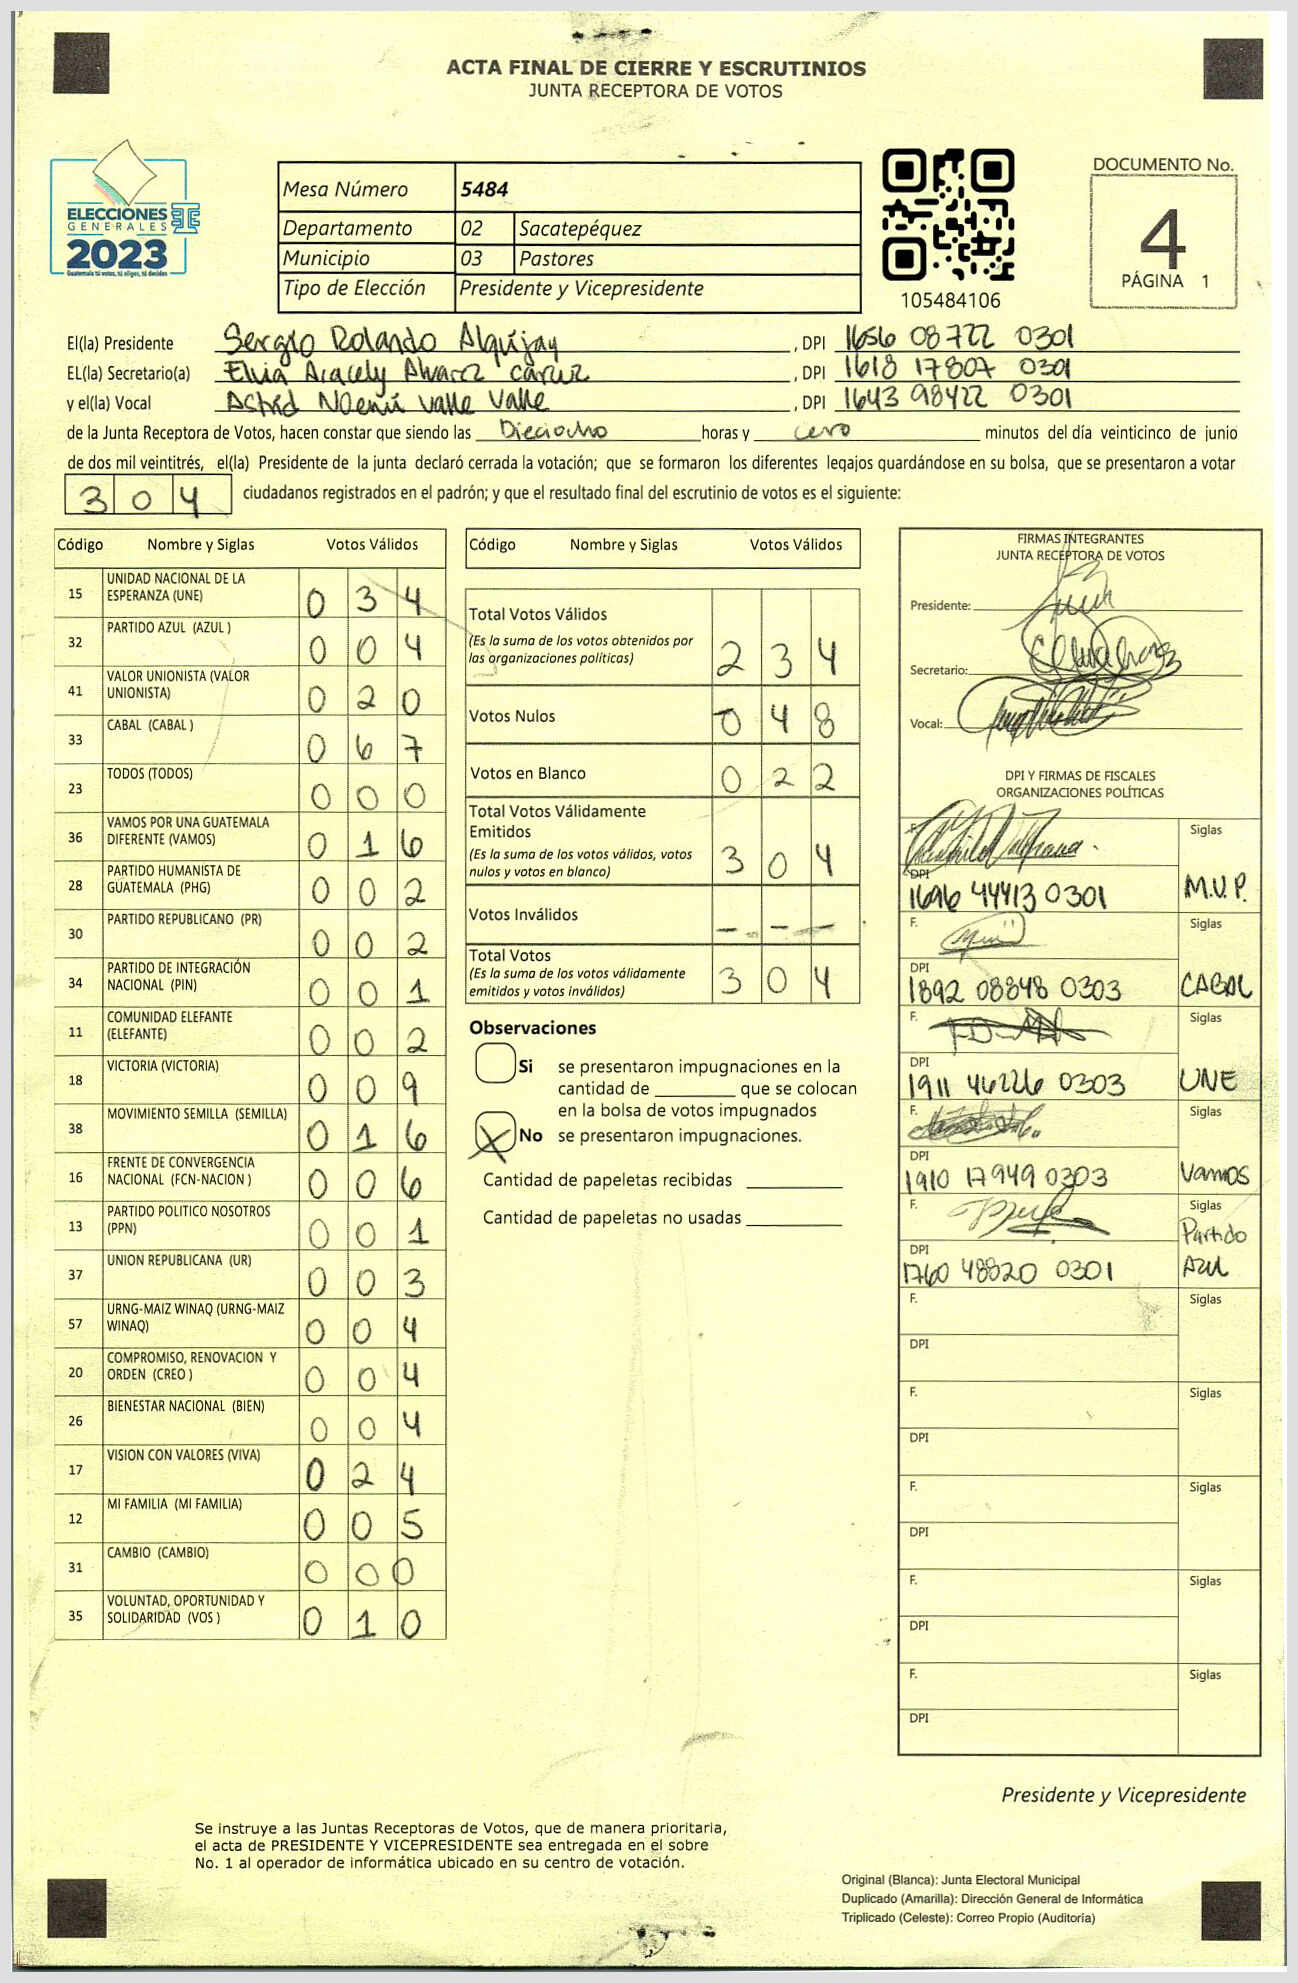 ACTA FINAL DE CIERRE Y ESCRUTINIOS
JUNTA RECEPTORA DE VOTOS
ELECCIONES
GENERALES
2023
Guatemala tú votas, tú eliges, tú decides
Mesa Número 5484
Departamento 02 Sacatepéquez
Municipio 03 Pastores
Tipo de Elección Presidente y Vicepresidente
105484106
DOCUMENTO No.
4
PÁGINA 1
El(la) Presidente Sergio Rolando Alquijay , DPI 1656 08722 0301
EL(la) Secretario(a) Elvia Aracely Alvarez , DPI 1618 17807 0301
y el(la) Vocal Astrid Noemí Valle Valle , DPI 1643 98422 0301
de la Junta Receptora de Votos, hacen constar que siendo las Dieciocho horas y cero minutos del día veinticinco de junio
de dos mil veintitrés, el(la) Presidente de la junta declaró cerrada la votación; que se formaron los diferentes legajos guardándose en su bolsa, que se presentaron a votar
304 ciudadanos registrados en el padrón; y que el resultado final del escrutinio de votos es el siguiente:
Código Nombre y Siglas Votos Válidos
15 UNIDAD NACIONAL DE LA ESPERANZA (UNE) 0 3 4
32 PARTIDO AZUL (AZUL ) 0 0 4
41 VALOR UNIONISTA (VALOR UNIONISTA) 0 2 0
33 CABAL (CABAL ) 0 6 7
23 TODOS (TODOS) 0 0 0
36 VAMOS POR UNA GUATEMALA DIFERENTE (VAMOS) 0 1 6
28 PARTIDO HUMANISTA DE GUATEMALA (PHG) 0 0 2
30 PARTIDO REPUBLICANO (PR) 0 0 2
34 PARTIDO DE INTEGRACIÓN NACIONAL (PIN) 0 0 1
11 COMUNIDAD ELEFANTE (ELEFANTE) 0 0 2
18 VICTORIA (VICTORIA) 0 0 9
38 MOVIMIENTO SEMILLA (SEMILLA) 0 1 6
16 FRENTE DE CONVERGENCIA NACIONAL (FCN-NACION ) 0 0 6
13 PARTIDO POLITICO NOSOTROS (PPN) 0 0 1
37 UNION REPUBLICANA (UR) 0 0 3
57 URNG-MAIZ WINAQ (URNG-MAIZ WINAQ) 0 0 4
20 COMPROMISO, RENOVACION Y ORDEN (CREO ) 0 0 4
26 BIENESTAR NACIONAL (BIEN) 0 0 4
17 VISION CON VALORES (VIVA) 0 2 4
12 MI FAMILIA (MI FAMILIA) 0 0 5
31 CAMBIO (CAMBIO) 0 0 0
35 VOLUNTAD, OPORTUNIDAD Y SOLIDARIDAD (VOS ) 0 1 0
Código Nombre y Siglas Votos Válidos
Total Votos Válidos
(Es la suma de los votos obtenidos por
las organizaciones políticas) 2 3 4
Votos Nulos 0 4 8
Votos en Blanco 0 2 2
Total Votos Válidamente
Emitidos
(Es la suma de los votos válidos, votos
nulos y votos en blanco) 3 0 4
Votos Inválidos - - -
Total Votos
(Es la suma de los votos válidamente
emitidos y votos inválidos) 3 0 4
Observaciones
Si se presentaron impugnaciones en la
cantidad de ________ que se colocan
en la bolsa de votos impugnados
X No se presentaron impugnaciones.
Cantidad de papeletas recibidas
Cantidad de papeletas no usadas
FIRMAS INTEGRANTES
JUNTA RECEPTORA DE VOTOS
Presidente:
Secretario:
Vocal:
DPI Y FIRMAS DE FISCALES
ORGANIZACIONES POLÍTICAS
F. Siglas
DPI
1696 44413 0301 M.V.P.
F. Siglas
DPI
1892 08848 0303 CABAL
F. Siglas
DPI
1911 46226 0303 UNE
F. Siglas
DPI
1910 17949 0303 Vamos
F. Siglas
Partido
DPI
1760 48820 0301 Azul
F. Siglas
DPI
F. Siglas
DPI
F. Siglas
DPI
F. Siglas
DPI
F. Siglas
DPI
Presidente y Vicepresidente
Se instruye a las Juntas Receptoras de Votos, que de manera prioritaria,
el acta de PRESIDENTE Y VICEPRESIDENTE sea entregada en el sobre
No. 1 al operador de informática ubicado en su centro de votación.
Original (Blanca): Junta Electoral Municipal
Duplicado (Amarilla): Dirección General de Informática
Triplicado (Celeste): Correo Propio (Auditoría)